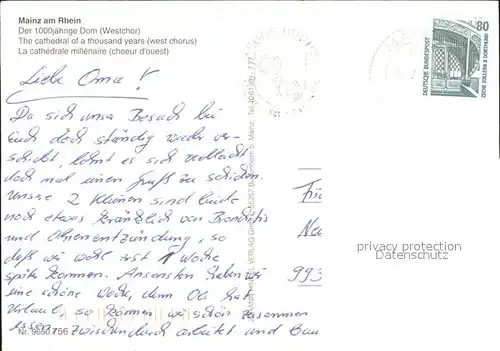 Mainz am Rhein
Der 1000jährige Dom (Westchor)
The cathedral of a thousand years (west chorus)
La cathédrale millénaire (choeur d'ouest)
Liebe Oma!
Da sich unser Besuch bei
Euch doch ständig wieder ver-
schiebt, lohnt es sich vielleicht
doch mal einen Gruß zu schicken.
Unsere 2 Kleinen sind beide
noch etwas kränklich von Bronchitis
und Ohrenentzündung, so
daß wir wohl erst 1 Woche
später kommen. Ansonsten haben wir
eine schöne Woche, denn Ole hat
Urlaub, so können wir schön zusammen
essen, zwischendurch arbeitet und
Nr. 9650 756
80
DEUTSCHE BUNDESPOST
ZECHE ZOLLERN II · DORTMUND
993
privacy protection
Datenschutz